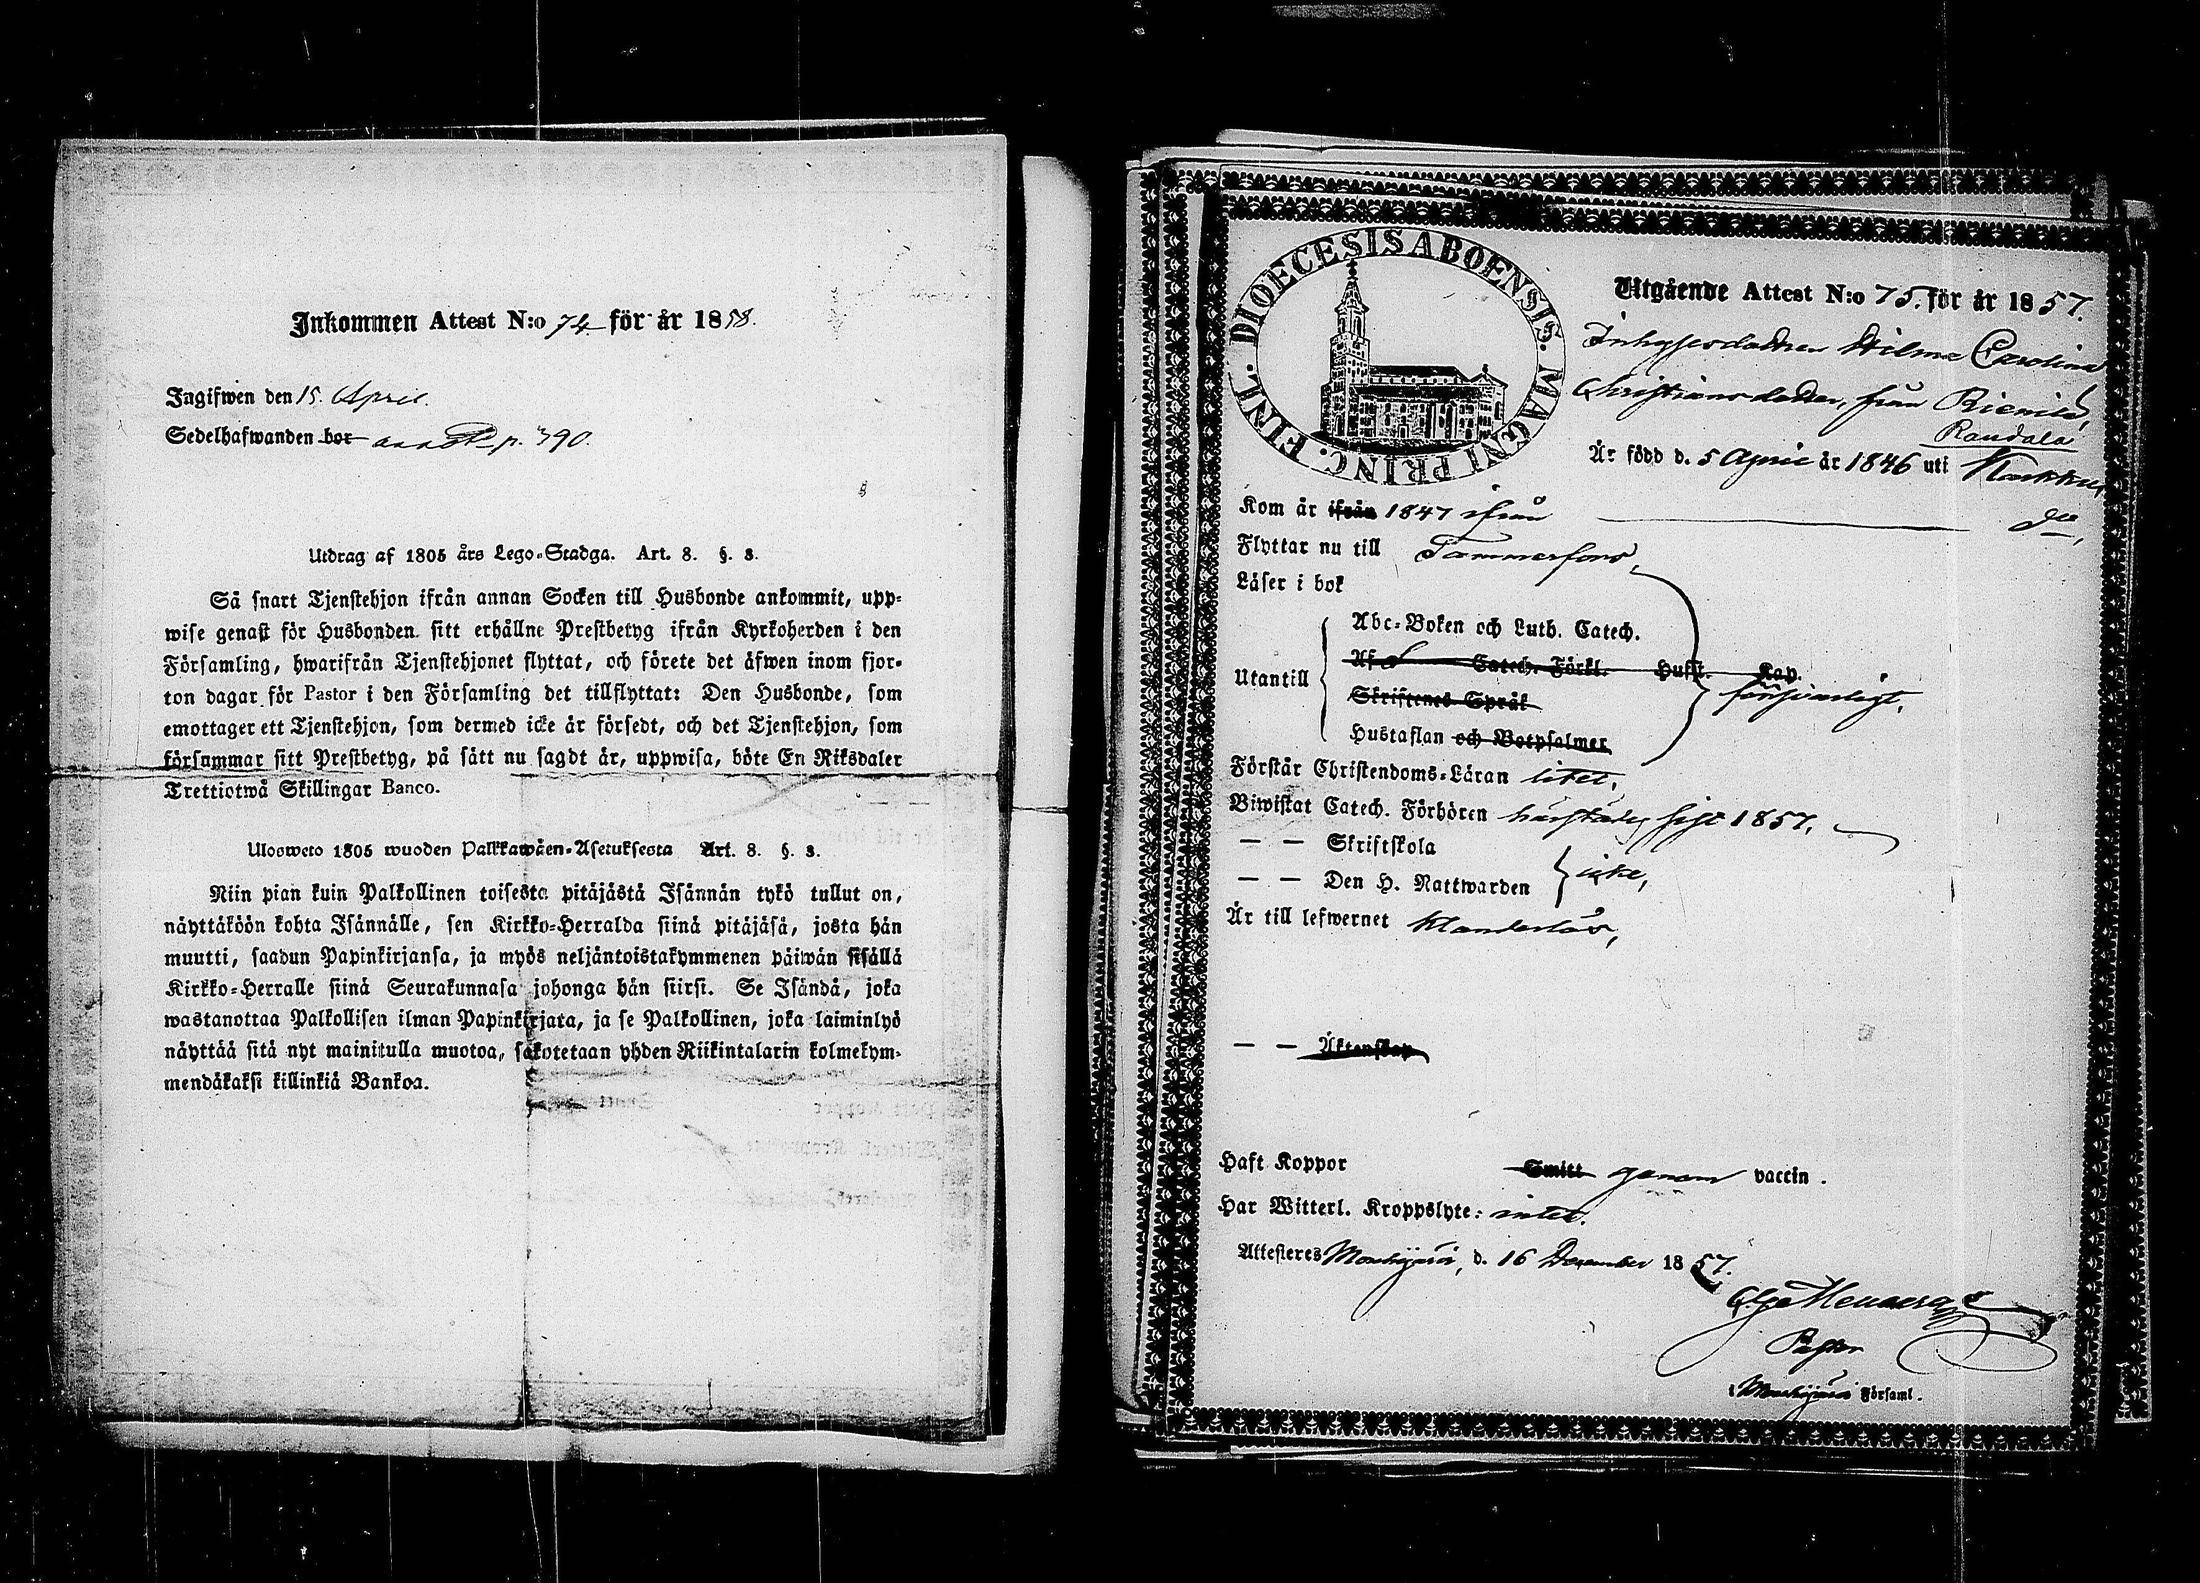 Inkommen Attest N:o 74 för år 1858.
Ingifwen den 15. April.
Sedelhafwanden bor p. 390.
Utdrag af 1805 års Lego-Stadga. Art. 8. §. 3.
Så snart Tjenstehjon ifrån annan Socken till Husbonde ankommit, upp-
wise genast för Husbonden sitt erhållne Prestbetyg ifrån Kyrkoherden i den
Församling, hwarifrån Tjenstehjonet flyttat, och förete det äfwen inom fjor-
ton dagar för Pastor i den Församling det tillflyttat: Den Husbonde, som
emottager ett Tjenstehjon, som dermed icke är försedt, och det Tjenstehjon, som
försummar sitt Prestbetyg, på sätt nu sagdt är, uppwisa, böte En Riksdaler
Trettiotwå Skillingar Banco.
Ulosweto 1805 wuoden Palkkawäen-Asetuksesta Art. 8. §. 3.
Niin pian kuin Palkollinen toisesta pitäjästä Isännän tykö tullut on,
näyttäköön kohta Isännälle, sen Kirkko-Herralda siinä pitäjäsä, josta hän
muutti, saadun Papinkirjansa, ja myös neljäntoistakymmenen päiwän sisällä
Kirkko-Herralle siinä Seurakunnasa johonga hän siirsi. Se Isändä, joka
wastanottaa Palkollisen ilman Papinkirjata, ja se Palkollinen, joka laiminlyö
näyttää sitä nyt mainitulla muotoa, sakotetaan yhden Riikintalarin kolmekym-
mendäkaksi killinkiä Bankoa.
DIOECESIS ABOENSIS. MAGNI PRINC. FINL.
Utgående Attest N:o 75. för år 1857.
Inhysesdottren Wilma Carolina
Christiansdotter, från
Raudala
Är född d. 5 April år 1846 uti Karkku,
Kom år ifrån 1847 ifrån d:o,
Flyttar nu till Tammerfors,
Läser i bok
Utantill
Abc-Boken och Luth. Catech.
Af Catech. Förkl. Husst. Kap.
Skriftenes Språk
Hustaflan och Botpsalmer
försvarligt,
Förstår Christendoms-Läran litet,
Biwistat Catech. Förhören 1857.
— — Skriftskola
— — Den H. Nattwarden
icke,
Är till lefwernet klanderlös,
— — Äktenskap
Haft Koppor Smitt genom vaccin.
Har Witterl. Kroppslyte: intet.
Attesteres Mouhijärvi, d. 16 December 1857.
Pastor
i Mouhijärvi Församl.